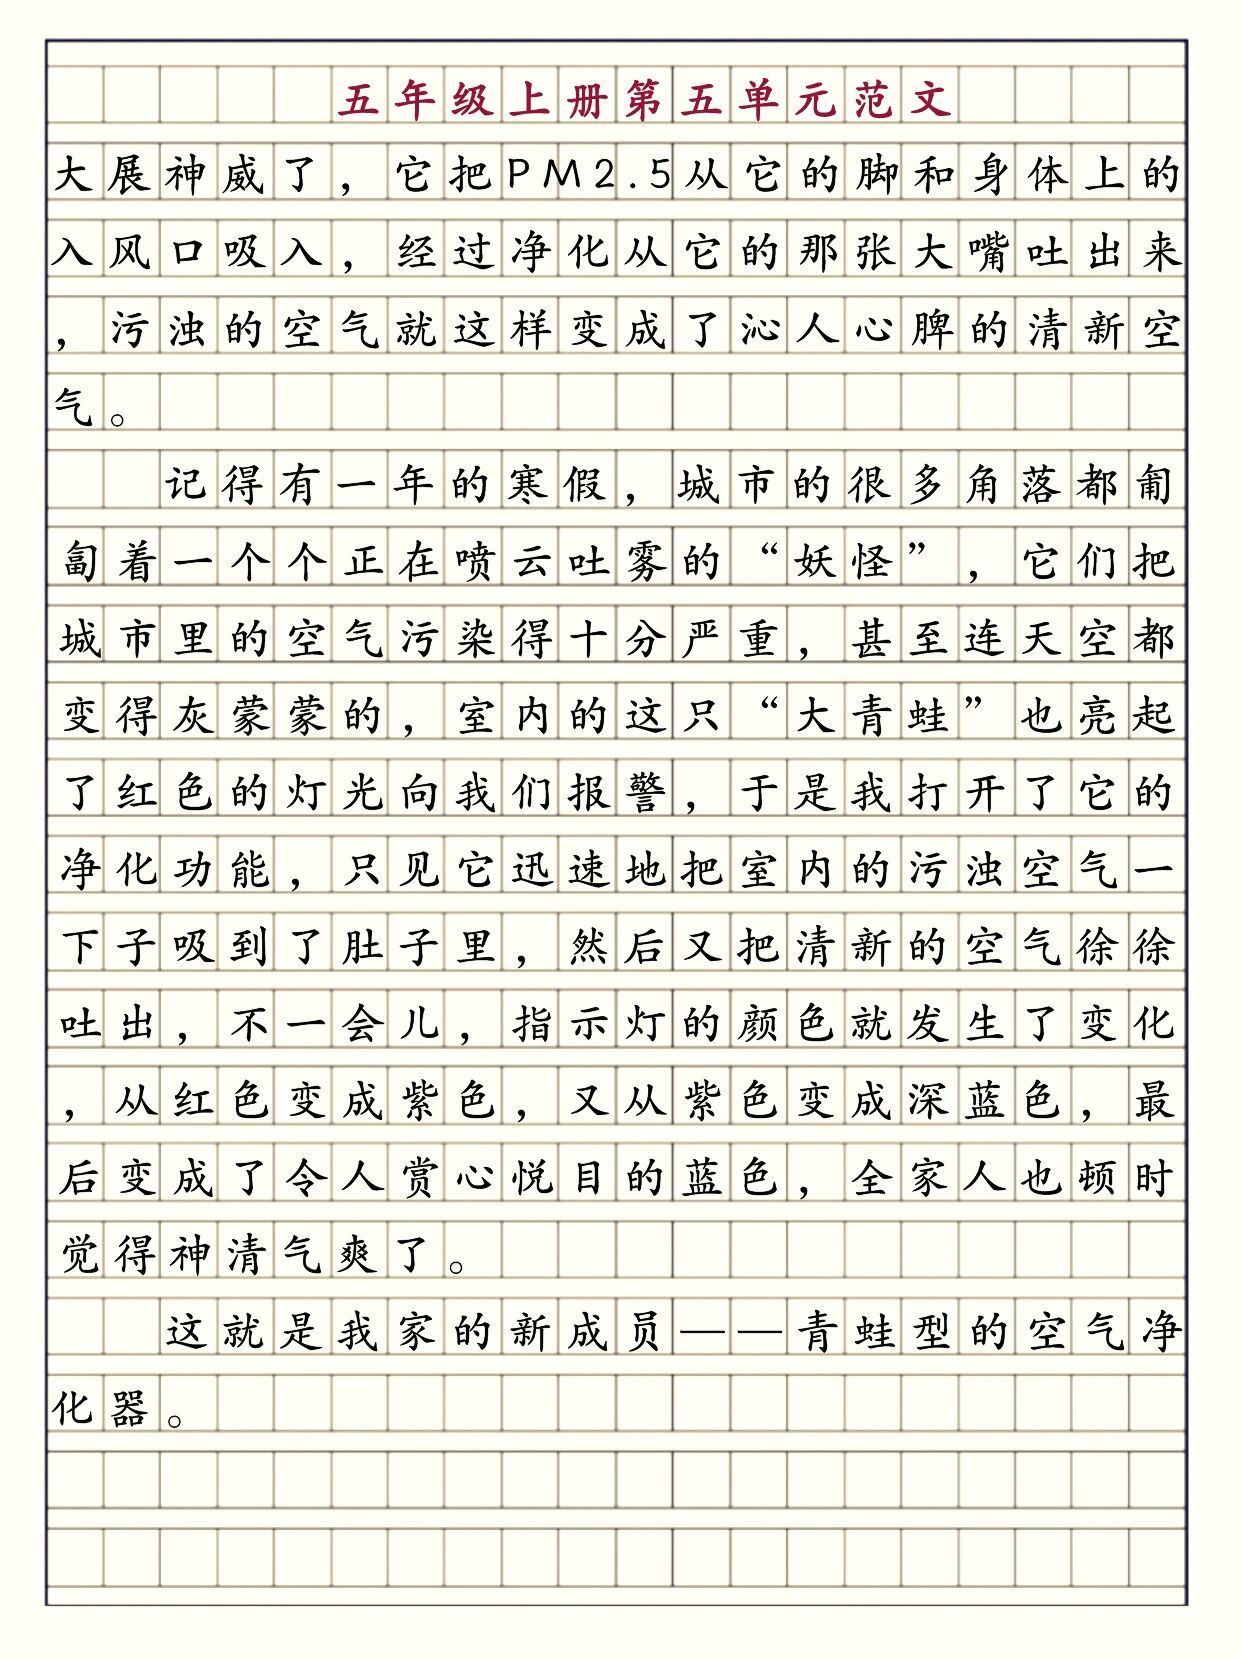 五年级上册第五单元范文
大展神威了，它把PM2.5从它的脚和身体上的
入风口吸入，经过净化从它的那张大嘴吐出来
，污浊的空气就这样变成了沁人心脾的清新空
气。
记得有一年的寒假，城市的很多角落都匍
匐着一个个正在喷云吐雾的“妖怪”，它们把
城市里的空气污染得十分严重，甚至连天空都
变得灰蒙蒙的，室内的这只“大青蛙”也亮起
了红色的灯光向我们报警，于是我打开了它的
净化功能，只见它迅速地把室内的污浊空气一
下子吸到了肚子里，然后又把清新的空气徐徐
吐出，不一会儿，指示灯的颜色就发生了变化
，从红色变成紫色，又从紫色变成深蓝色，最
后变成了令人赏心悦目的蓝色，全家人也顿时
觉得神清气爽了。
这就是我家的新成员——青蛙型的空气净
化器。